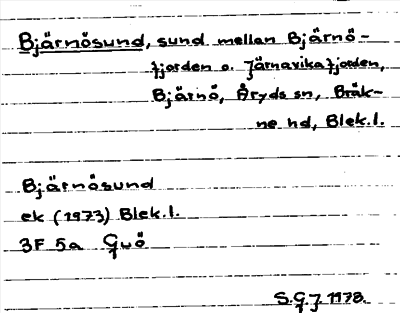 Bjärnösund, sund mellan Bjärnö-
fjorden o. Järnavikafjorden,
Bjärnö, Åryds sn, Bräk-
ne hd, Blek.l.
Bjärnösund
ek (1973) Blek.l.
3F 5a Guö
S.G.J. 1978.